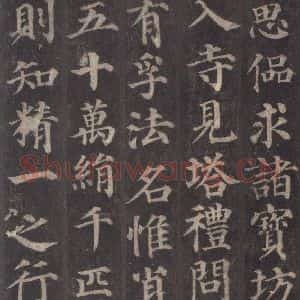 思偘求諸寶坊
入寺見塔禮問
有孚法名惟肖
五十萬絹千匹
則知精一之行
Shufawang.CN